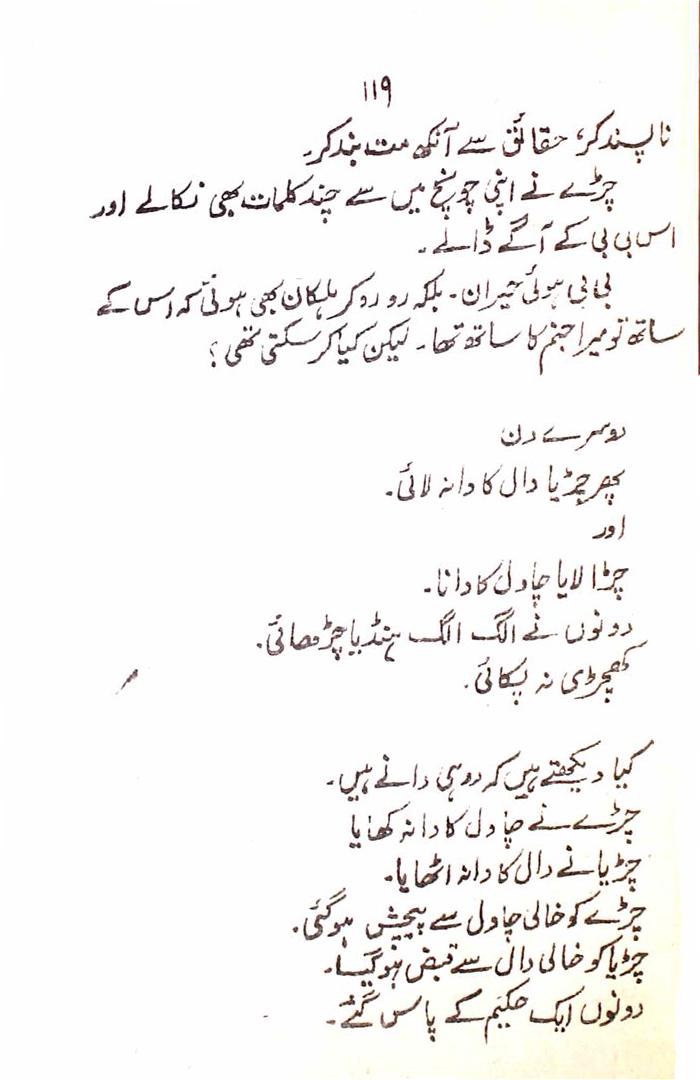 ۱۱۹
ناپسند کر، حقائق سے آنکھ مت بند کر۔
چڑے نے اپنی چونچ میں سے چند کلمات بھی نکالے اور
اس بی بی کے آگے ڈالے۔
بی بی ہوئی حیران۔ بلکہ رو رو کر ہلکان بھی ہوئی کہ اس کے
ساتھ تو میرا جنم کا ساتھ تھا۔ لیکن کیا کر سکتی تھی؟
دوسرے دن
پھر چڑیا دال کا دانہ لائی۔
اور
چڑا لایا چاول کا دانا۔
دونوں نے الگ الگ ہنڈیا چڑھائی۔
کھچڑی نہ پکائی۔
کیا دیکھتے ہیں کہ دو ہی دانے ہیں۔
چڑے نے چاول کا دانہ کھایا
چڑیا نے دال کا دانہ اٹھایا۔
چڑے کو خالی چاول سے پیچش ہو گئی۔
چڑیا کو خالی دال سے قبض ہو گیا۔
دونوں ایک حکیم کے پاس گئے۔